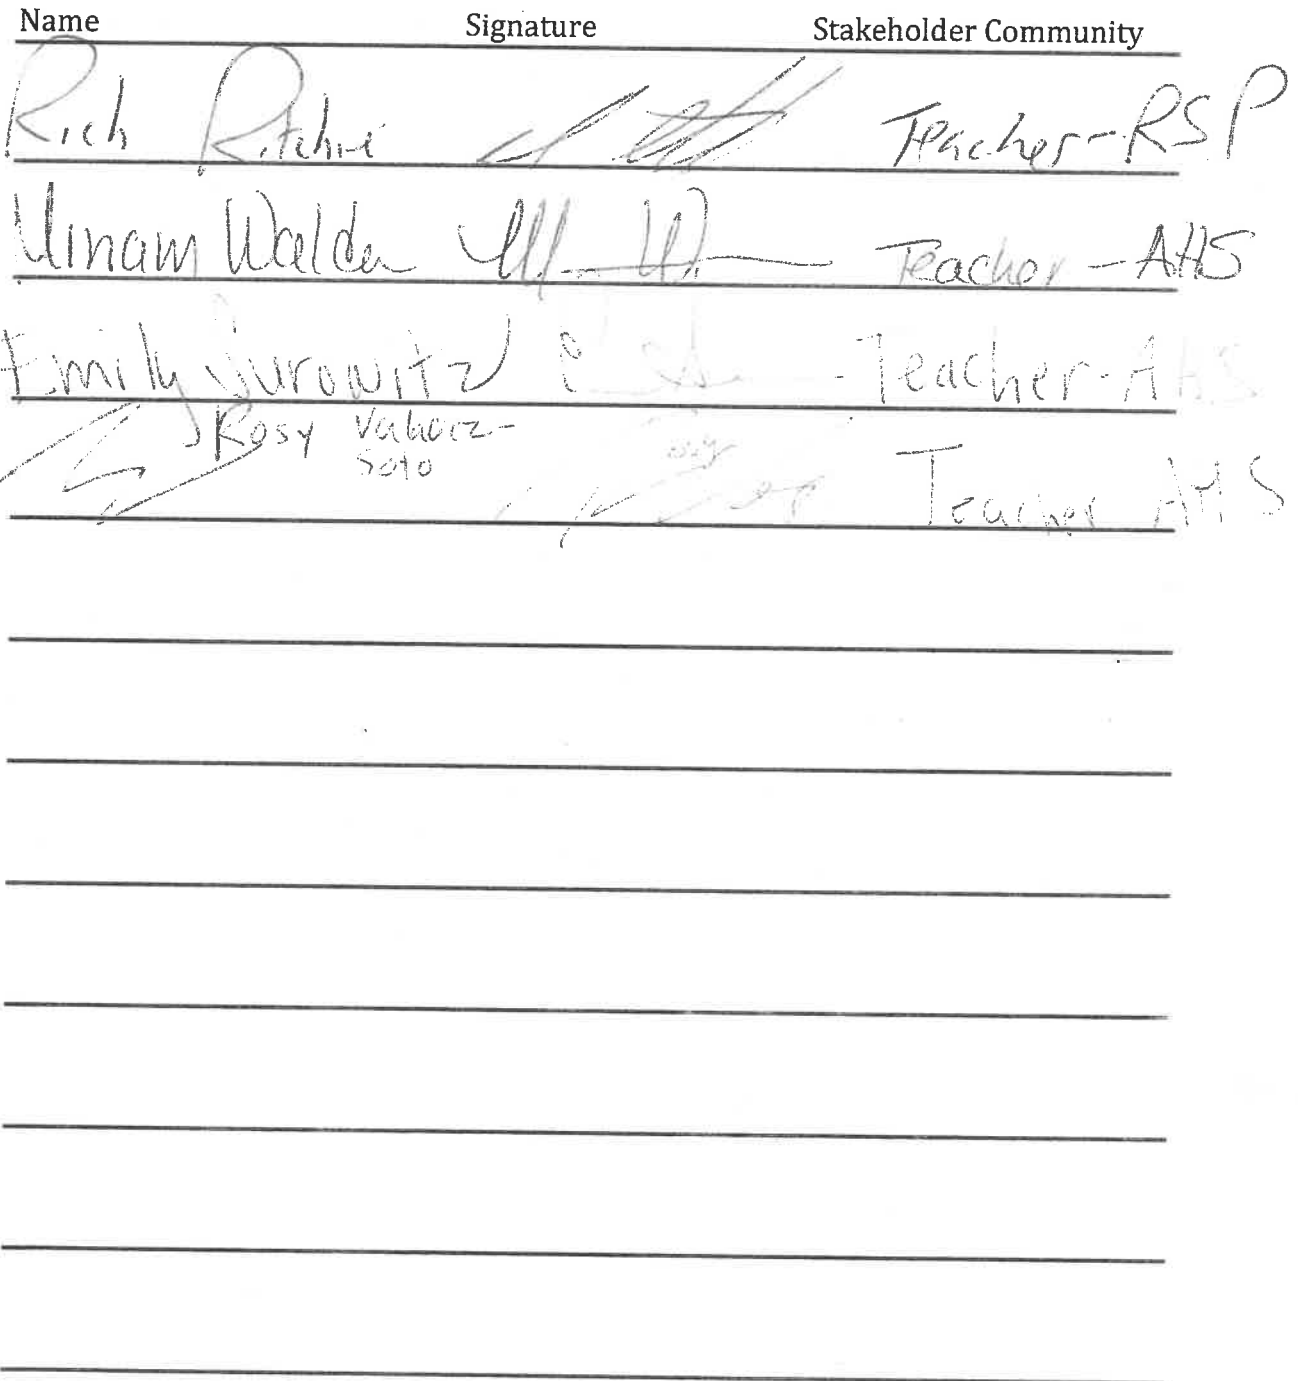 Name Signature Stakeholder Community
Rich Ritchie Teacher-RSP
Walden Teacher-AHS
Emily Surowitz Teacher-AHS
Rosy
Soto
Teacher AHS